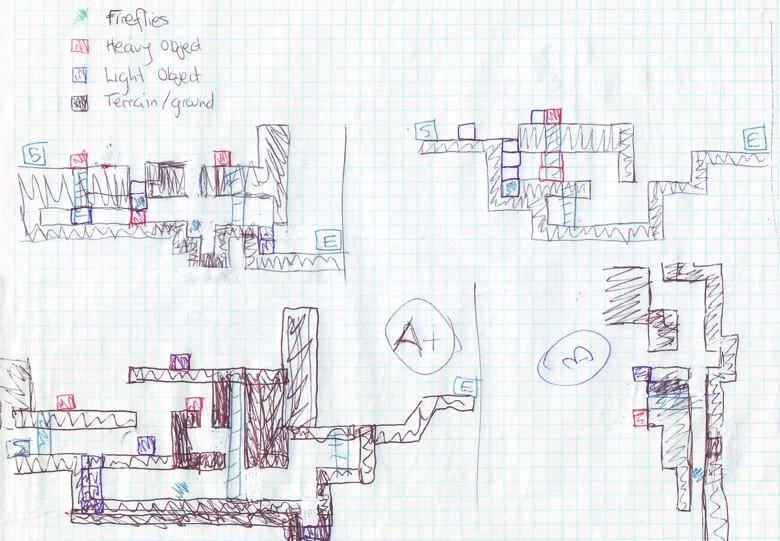 Fireflies
Heavy Object
Light Object
Terrain/ground
S
E
S
E
A+
B
S
E